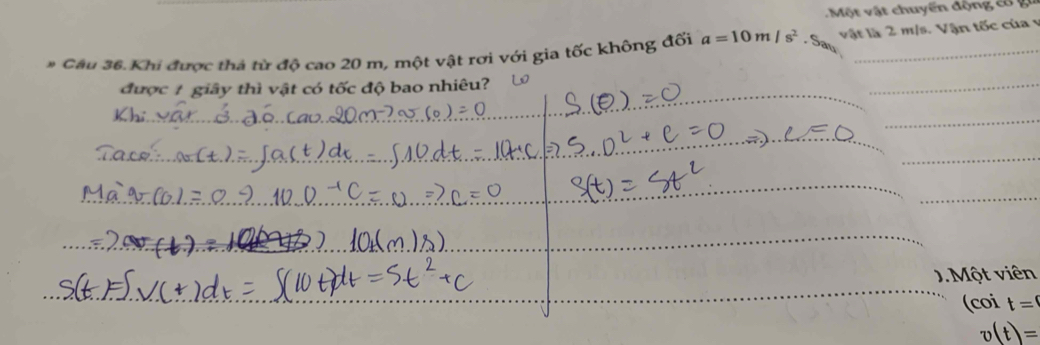 .Một vật chuyển động có
vật là 2 m/s. Vận tốc của
» Câu 36. Khi được thả từ độ cao 20 m, một vật rơi với gia tốc không đổi a = 10 m / s². Sau
được t giây thì vật có tốc độ bao nhiêu?
Khi vật ở độ cao 20m → v(0) = 0
Ta có: v(t) = ∫a(t)dt = ∫10dt = 10t+C
Mà v(0) = 0 → 10.0 + C = 0 => C = 0
=> v(t) = 10t(m/s)
S(t) = ∫v(t)dt = ∫(10t)dt = 5t² + C
S(0) = 0
=> 5.0² + C = 0 => C = 0
S(t) = 5t²
).Một viên
(coi t =
v(t) =